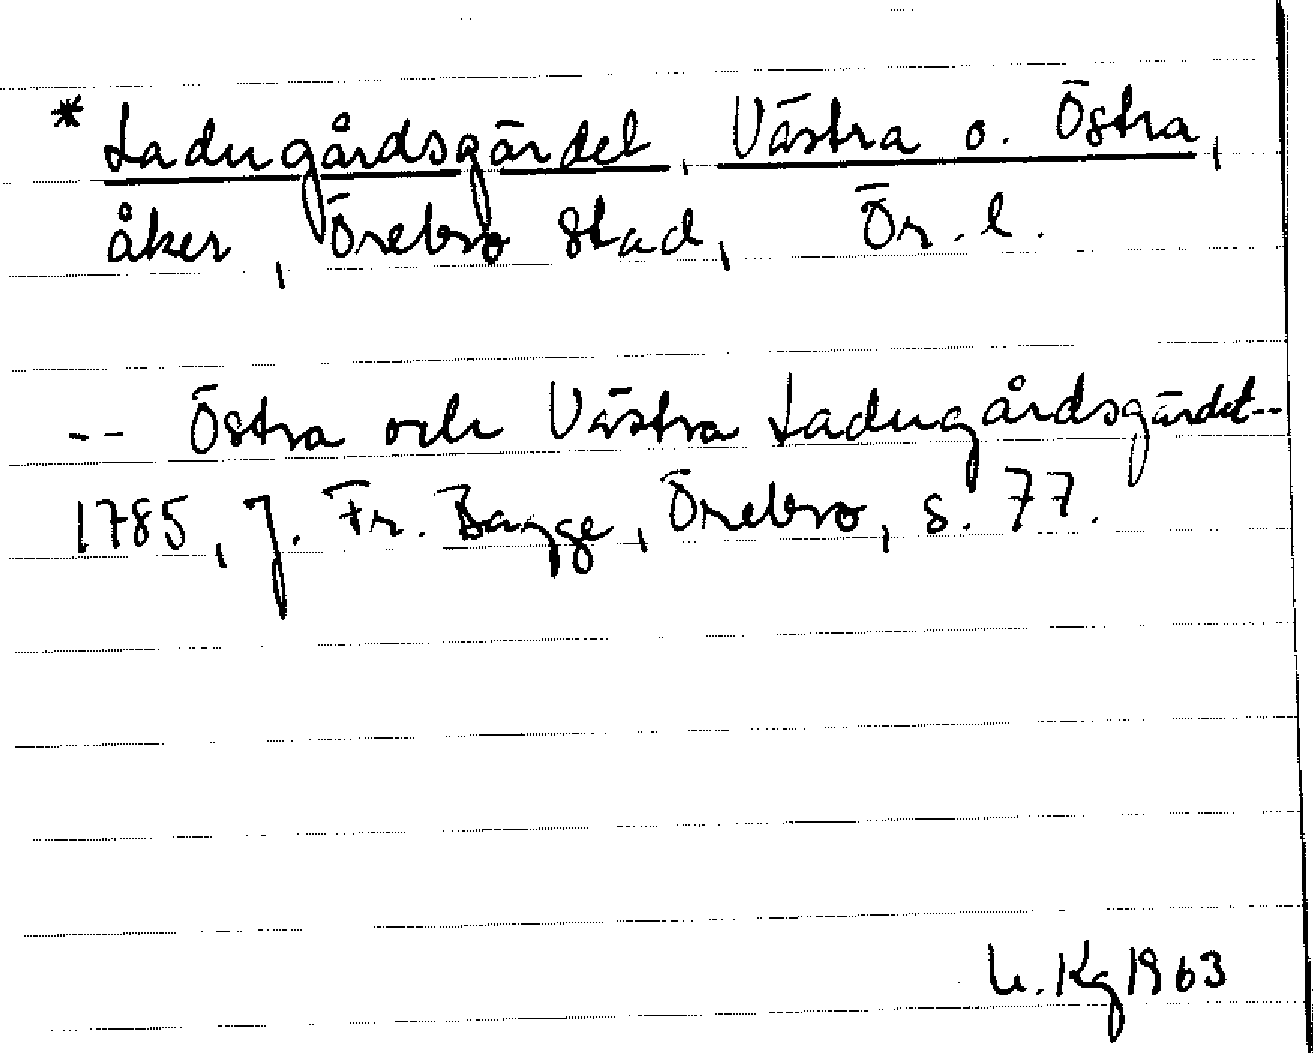 * Ladugårdsgärdet, Västra o. Östra,
åker, Örebro stad, Ör. l.
-- Östra och Västra Ladugårdsgärdet--
1785, J. Fr. Bagge, Örebro, s. 77.
U. Kg 1963